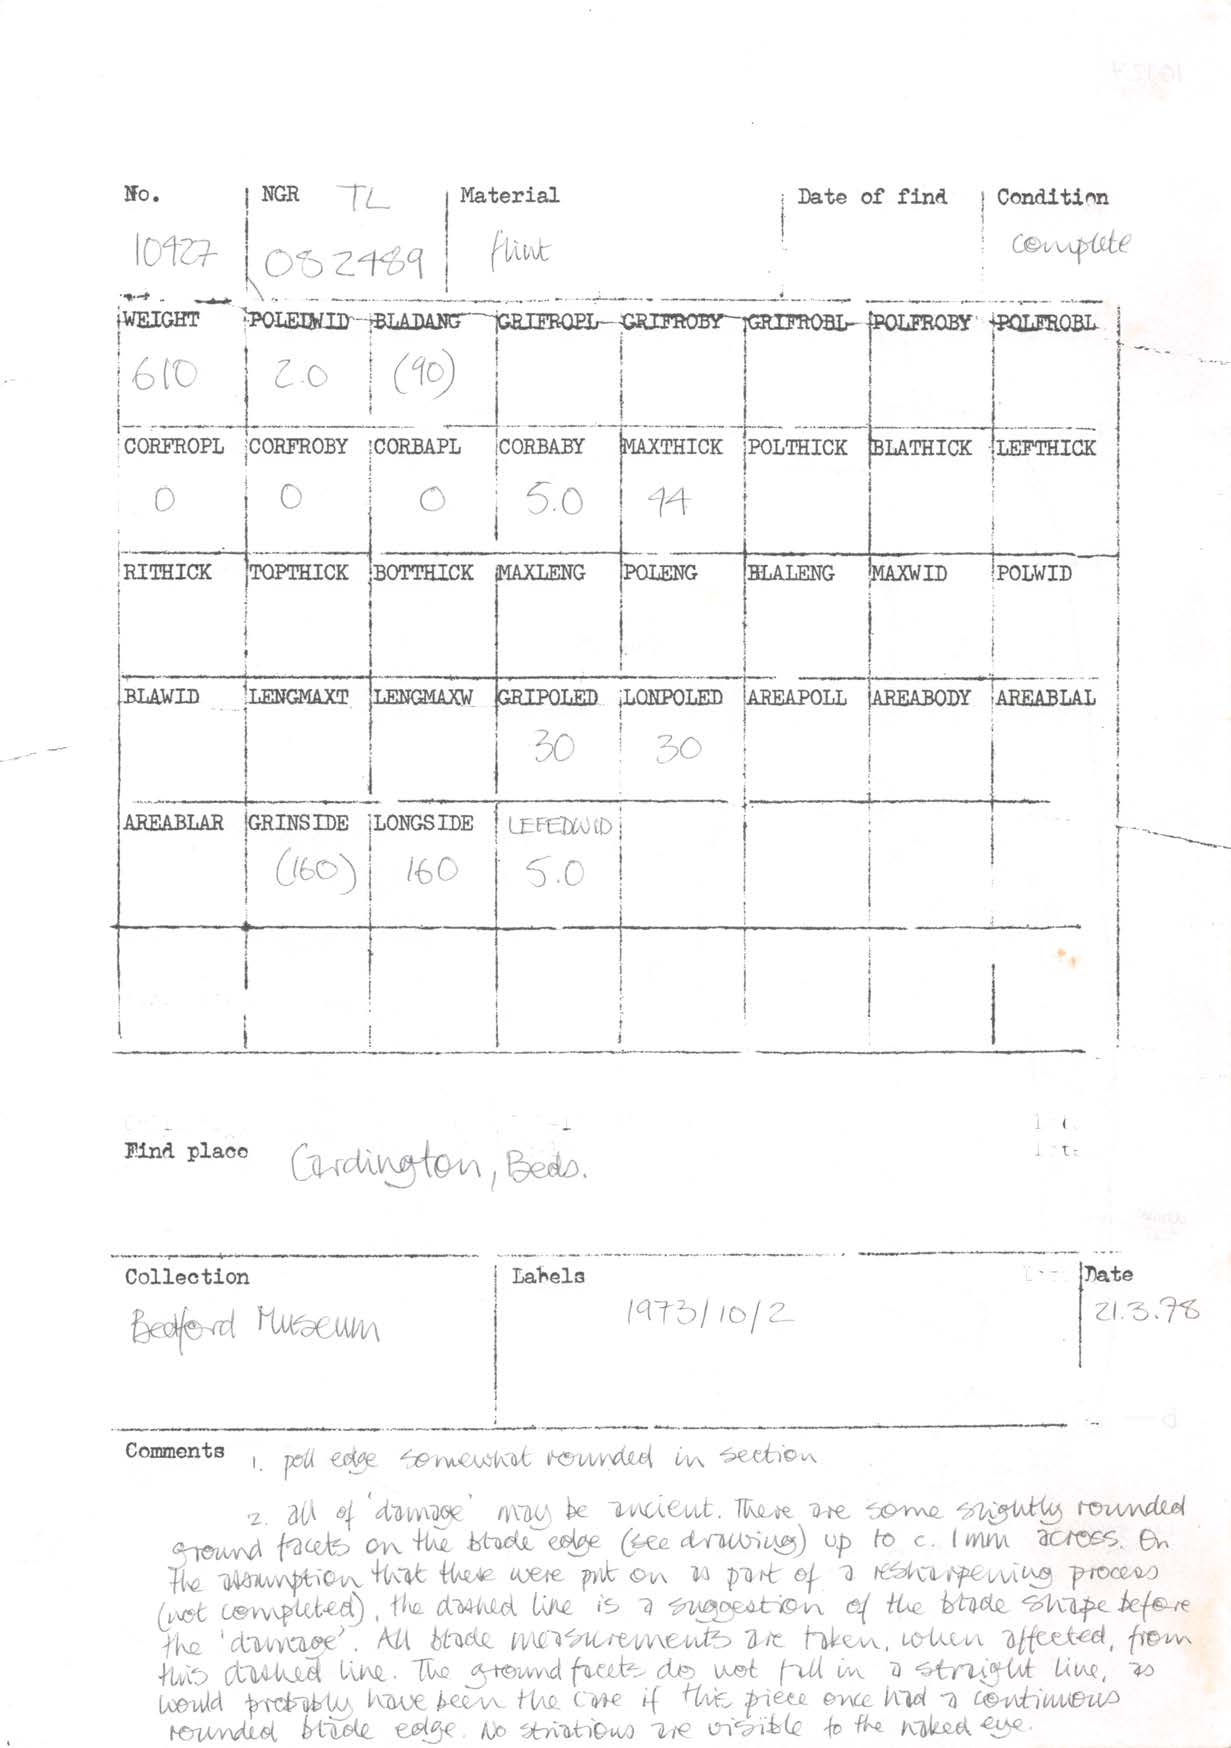 No. NGR TL Material Date of find Condition
10427 082489 flint complete
WEIGHT POLEDWID BLADANG GRIFROPL GRIFROBY GRIFROBL POLFROBY POLFROBL
610 2.0 (90)
CORFROPL CORFROBY CORBAPL CORBABY MAXTHICK POLTHICK BLATHICK LEFTHICK
0 0 0 5.0 44
RITHICK TOPTHICK BOTTHICK MAXLENG POLENG BLALENG MAXWID POLWID
BLAWID LENGMAXT LENGMAXW GRIPOLED LONPOLED AREAPOLL AREABODY AREABLAL
30 30
AREABLAR GRINSIDE LONGSIDE LEFEDWID
(160) 160 5.0
Find place Cardington, Beds.
Collection Labels Date
Bedford Museum 1973/10/2 21.3.78
Comments 1. poll edge somewhat rounded in section
2. all of 'damage' may be ancient. There are some slightly rounded
ground facets on the blade edge (see drawing) up to c. 1mm across. On
the assumption that these were put on as part of a resharpening process
(not completed), the dashed line is a suggestion of the blade shape before
the 'damage'. All blade measurements are taken, when affected, from
this dashed line. The ground facets do not fall in a straight line, as
would probably have been the case if this piece once had a continuous
rounded blade edge. No striations are visible to the naked eye.